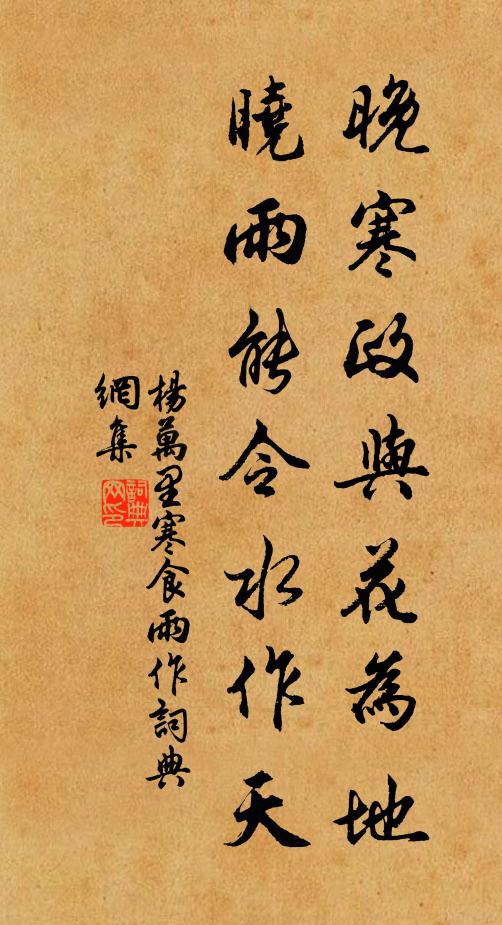 晚寒政與花為地
曉雨能令水作天
楊萬里寒食雨作詞典
網集
詞典
网印